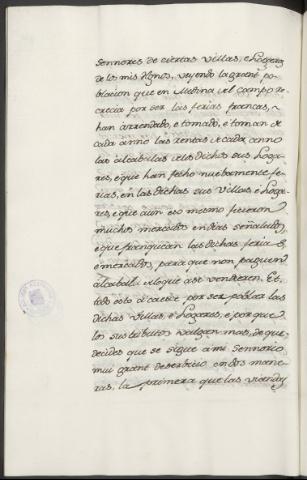 Sennores de ciertas Villas, e logares
de los mis Regnos, veyendo la grant po-
blacion que en Medina del Campo re-
crecia por ser las ferias francas,
han arrendado, e tomado, e toman de
cada anno las rentas de cada anno
las alcabalas de los dichos sus loga-
res, e que han fecho nuebamente fe-
rias, en las dichas sus Villas, e loga-
res, e que aun eso mesmo ficieron
muchos mercados en dias señalados,
e que franquean las dichas ferias,
e mercados, para que non paguen
alcaballa de lo que asi vendieren. Et
todo esto diz que por ser pobladas las
dichas Villas, e logares, e por que
los sus tributos valgan mas, de que
decides que se sigue a mi Sennorio
mui grant deserbicio en dos mane-
ras, la primera que las viandas